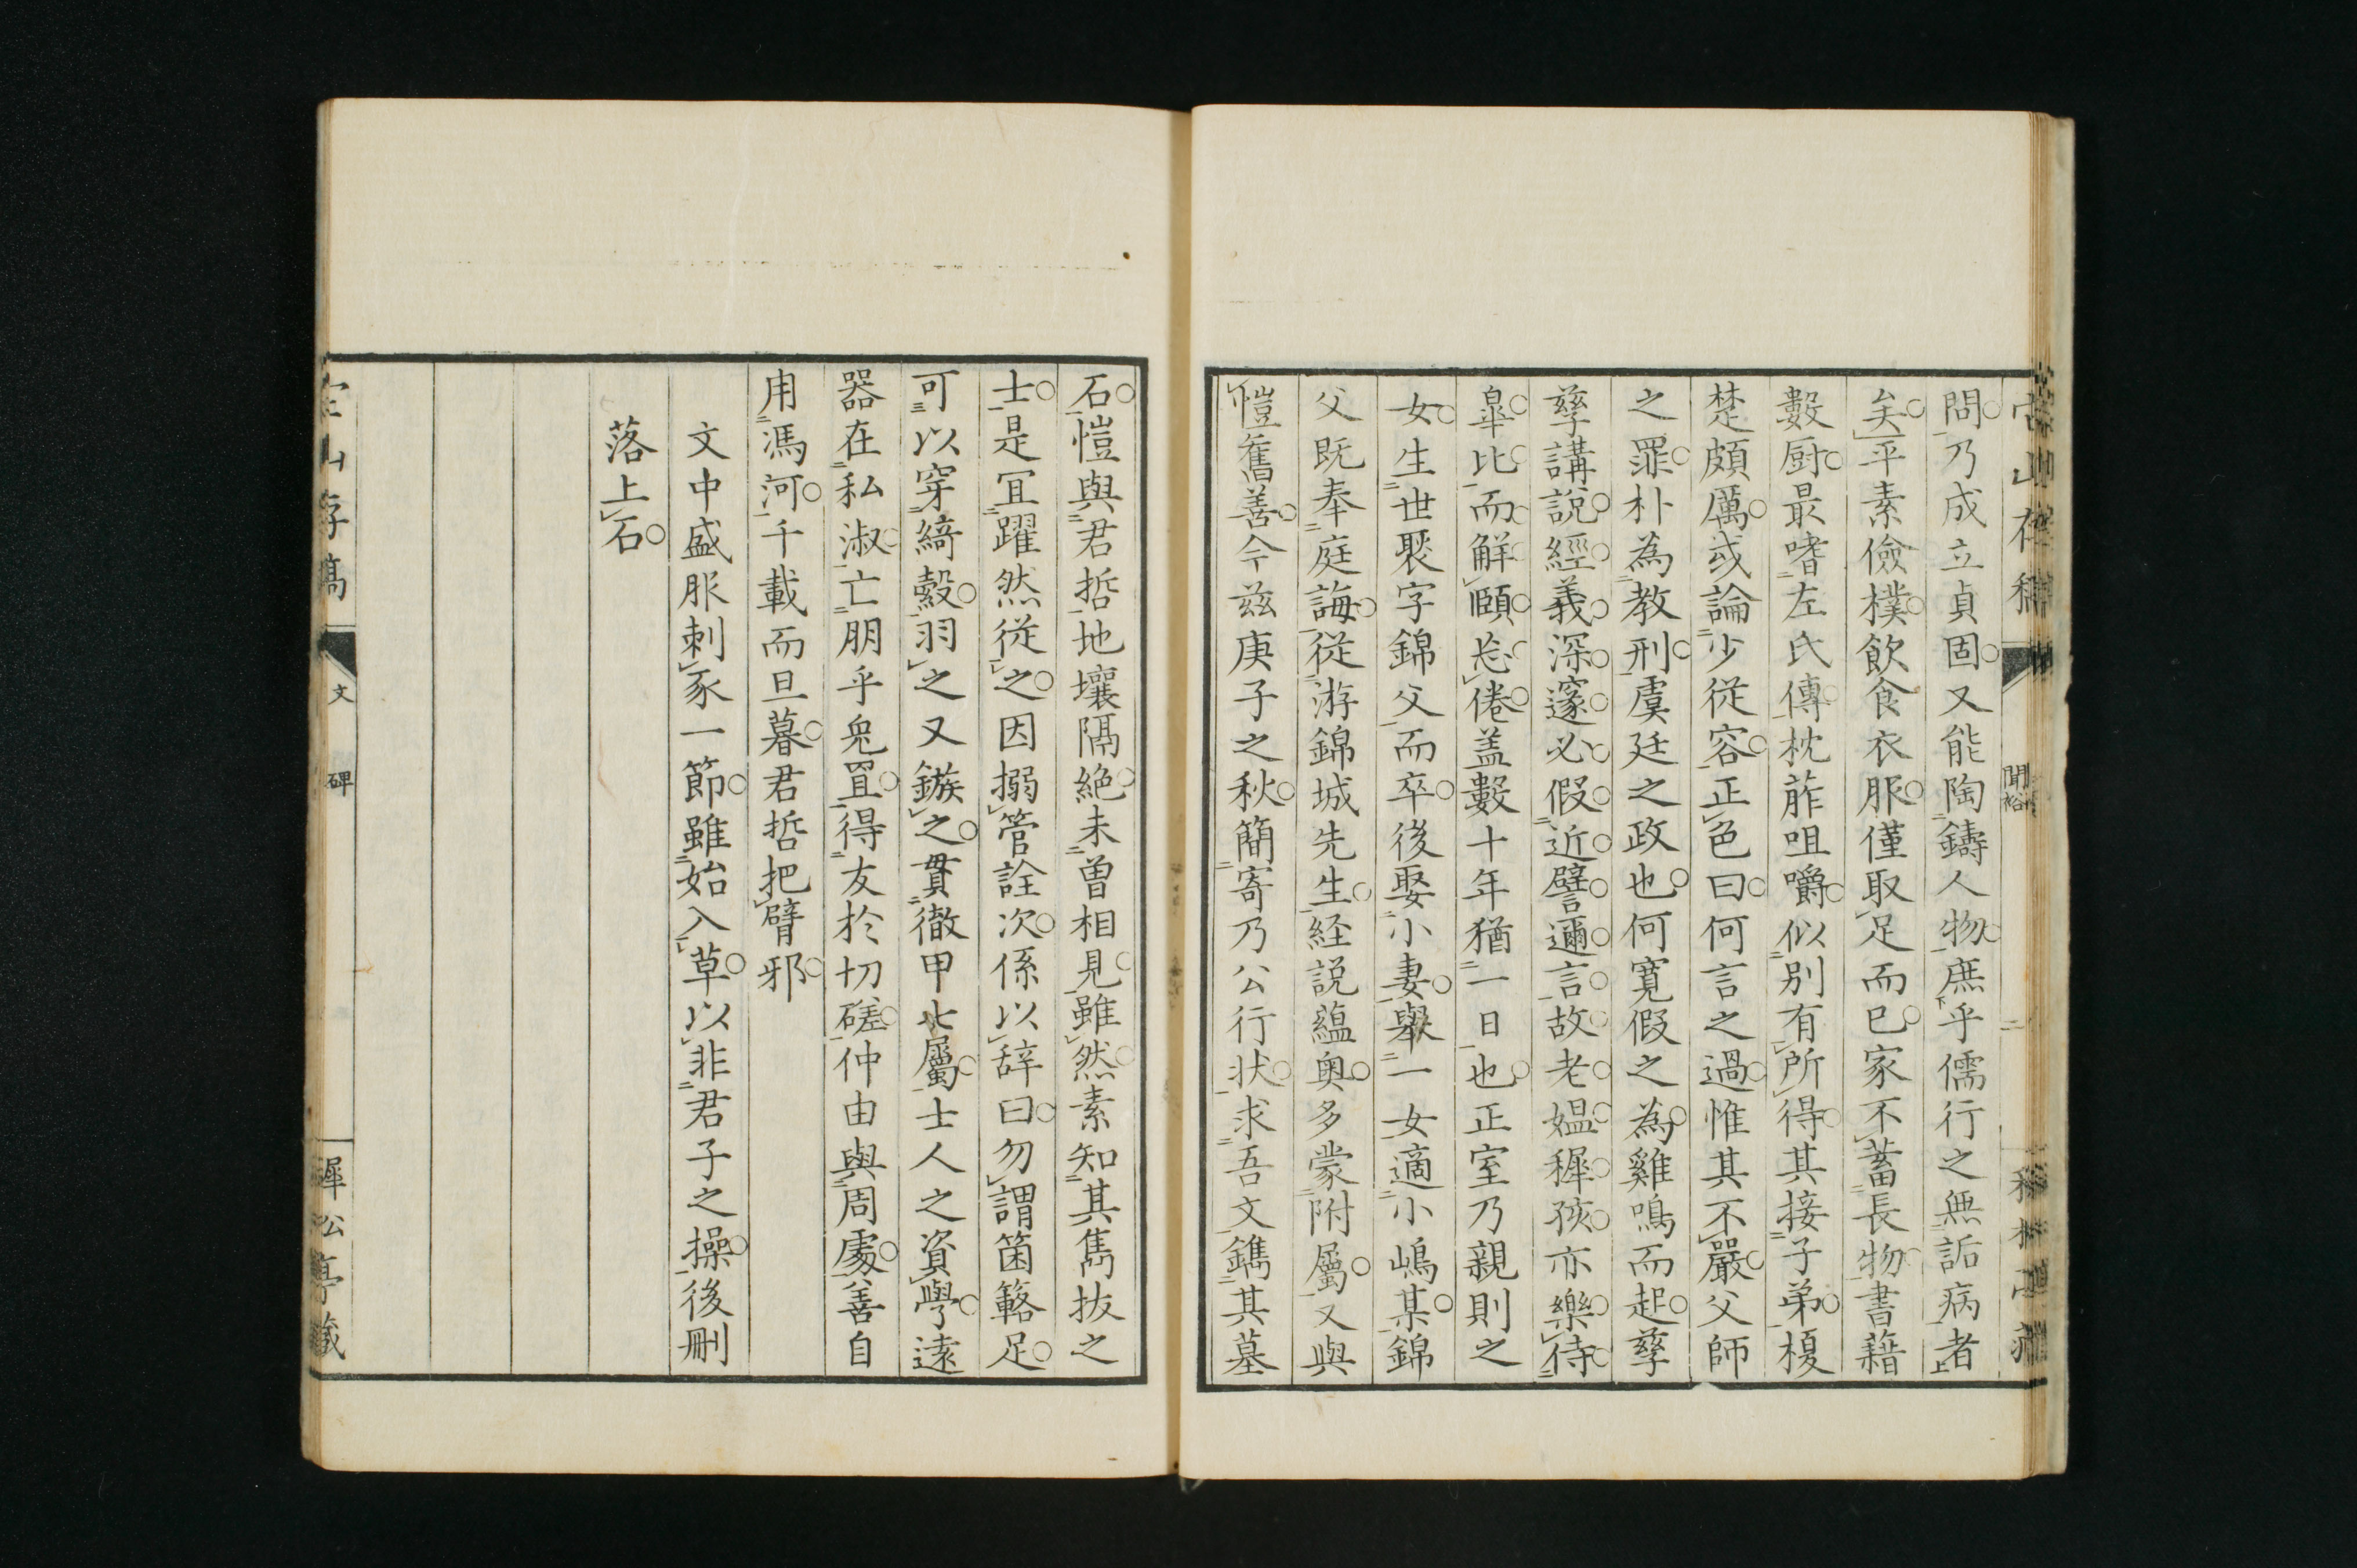 問乃成立貞固又能陶鑄人物庶乎儒行之無詬病者
矣平素儉樸飲食衣服僅取足而已家不蓄長物書藉
數厨最嗜左氏傳枕葄咀嚼似別有所得其接子弟榎
楚頗厲或論少從容正色曰何言之過惟其不嚴父師
之罪朴為教刑虞廷之政也何寛假之為雞鳴而起孳
孳講說經義深邃必假近譬邇言故老媼穉孩亦樂侍
皐比而解頤忘倦盖數十年猶一日也正室乃親則之
女生世褧字錦父而卒後娶小妻舉一女適小嶋某錦
父既奉庭誨從游錦城先生経説蘊奥多蒙附屬又與
愷舊善今兹庚子之秋簡寄乃公行状求吾文鐫其墓
石愷與君哲地壤隔絶未曽相見雖然素知其雋抜之
士是冝躍然従之因搦管詮次係以辞曰勿謂箘簵足
可以穿綺縠羽之又鏃之貫徹甲七屬士人之資學遠
器在私淑亡朋乎兎罝得友於切磋仲由與周處善自
用馮河千載而旦暮君哲把臂邪
文中盛服刺豕一節雖始入草以非君子之操後刪
落上石
文 碑